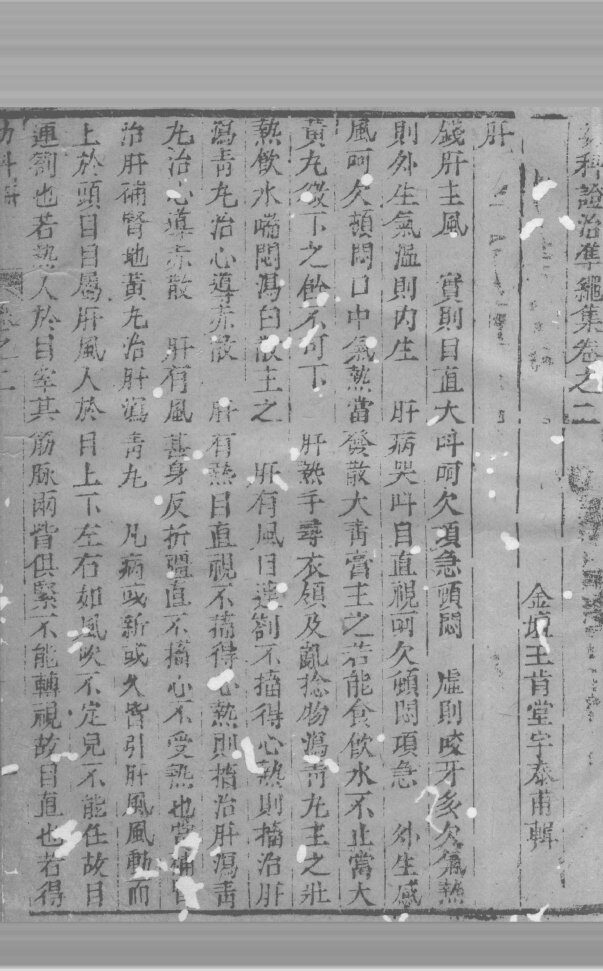 科證治準繩集卷之二
金壇王肯堂宇泰甫輯
肝
錢肝主風　實則目直大呌呵欠項急頓悶　虛則咬牙多欠氣熱
則外生氣溫則內生　肝病哭呌目直視呵欠頓悶項急　外生感
風呵欠頓悶口中氣熱當發散大青膏主之若能食飲水不止當大
黃丸微下之餘不可下　肝熱手尋衣領及亂捻物瀉青丸主之壯
熱飲水喘悶瀉白散主之　肝有風目連劄不搐得心熱則搐治肝
瀉青丸治心導赤散　肝有熱目直視不搐得心熱則搐治肝瀉青
丸治心導赤散　肝有風甚身反折强直不搐心不受熱也當補腎
治肝補腎地黃丸治肝瀉青丸　凡病或新或久皆引肝風風動而
上於頭目目屬肝風入於目上下左右如風吹不定兒不能任故目
連劄也若熱入於目牽其筋脉兩眥俱緊不能轉視故目直也若得
幼科肝　卷之二